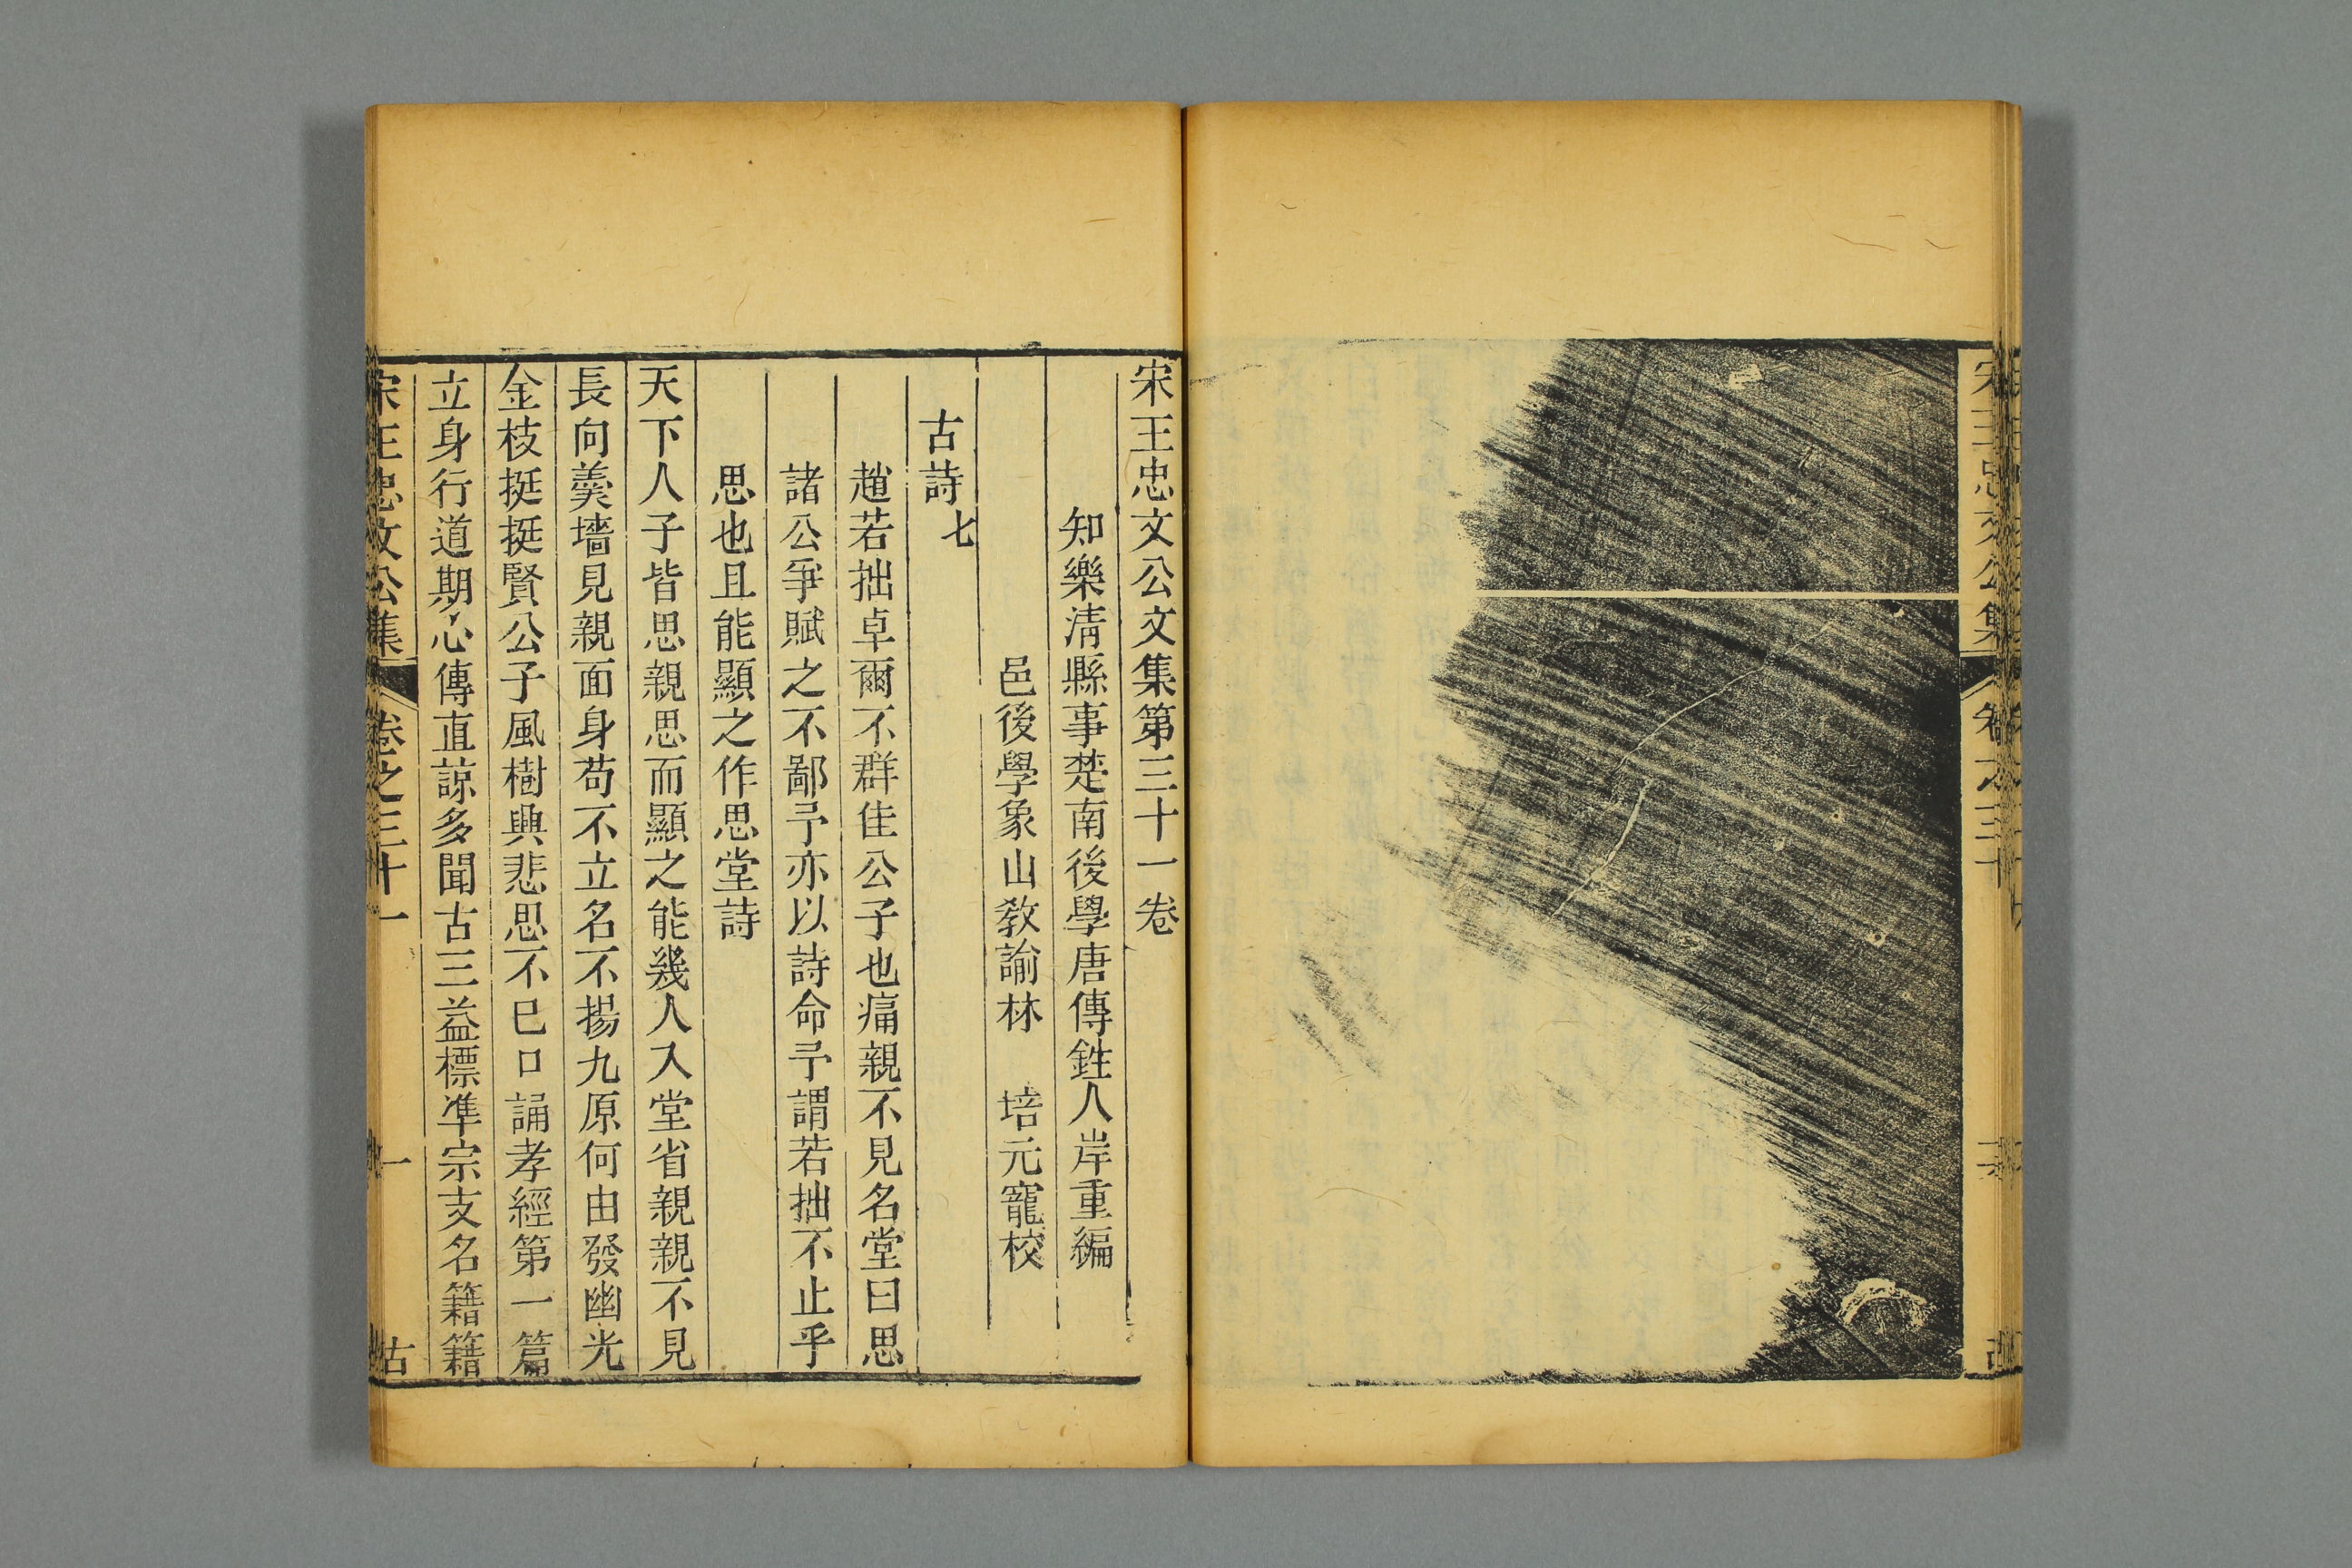 宋王忠文公文集第三十一卷
知樂清縣事楚南後學唐傳鉎人岸重編
邑後學象山敎諭林　培元寵校
古詩七
趙若拙卓爾不群佳公子也痛親不見名堂曰思
諸公爭賦之不鄙予亦以詩命予謂若拙不止乎
思也且能顯之作思堂詩
天下人子皆思親思而顯之能幾人入堂省親親不見
長向羹墻見親面身苟不立名不揚九原何由發幽光
金枝挺挺賢公子風樹興悲思不已口誦孝經第一篇
立身行道期心傳直諒多聞古三益標準宗支名籍籍
宋王忠文公集 卷之三十一 一 古